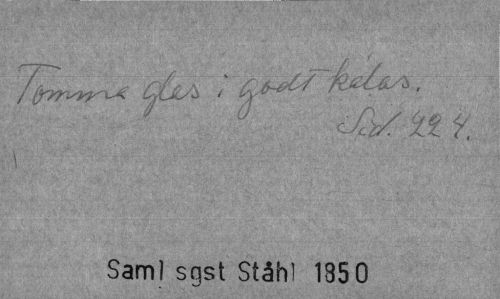 Tomma glas i godt kalas.
Sid. 224.
Saml sgst Ståhl 1850